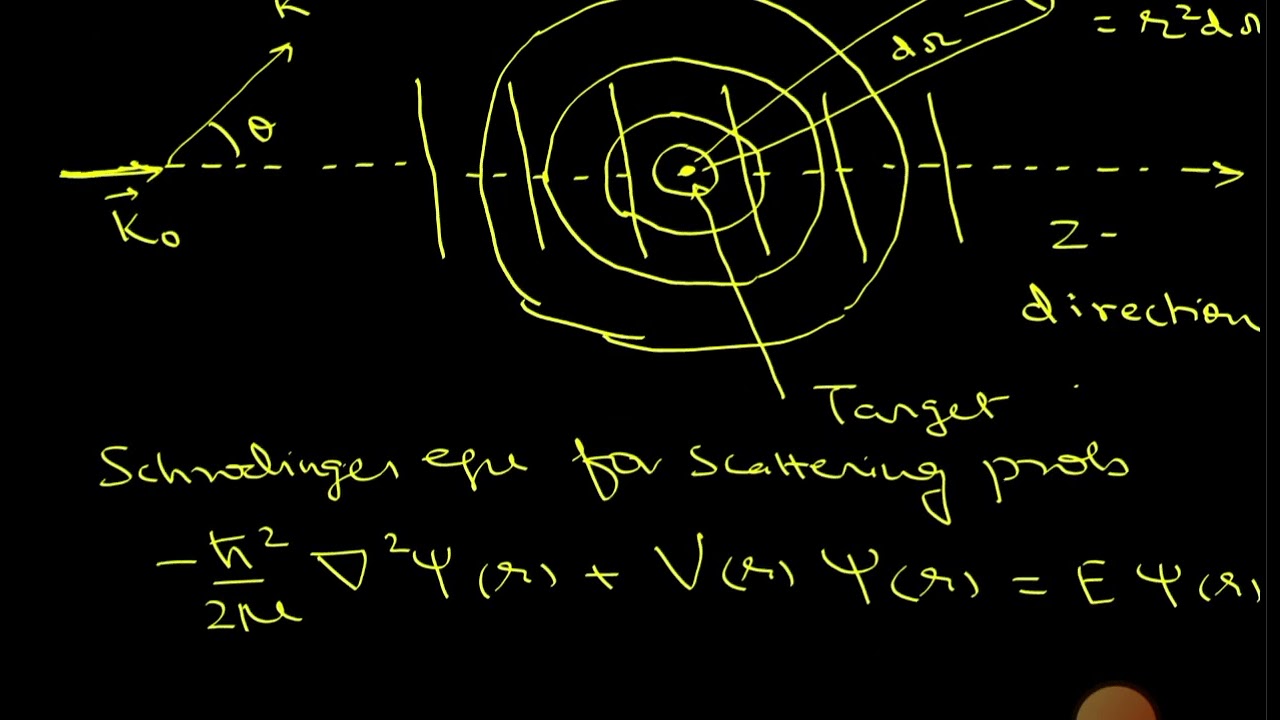 K
= r²dΩ
dΩ
θ
K₀
Z-
direction
Target
Schrodinger equ for scattering prob
-ħ²/2μ ∇²Ψ(r) + V(r) Ψ(r) = E Ψ(r)